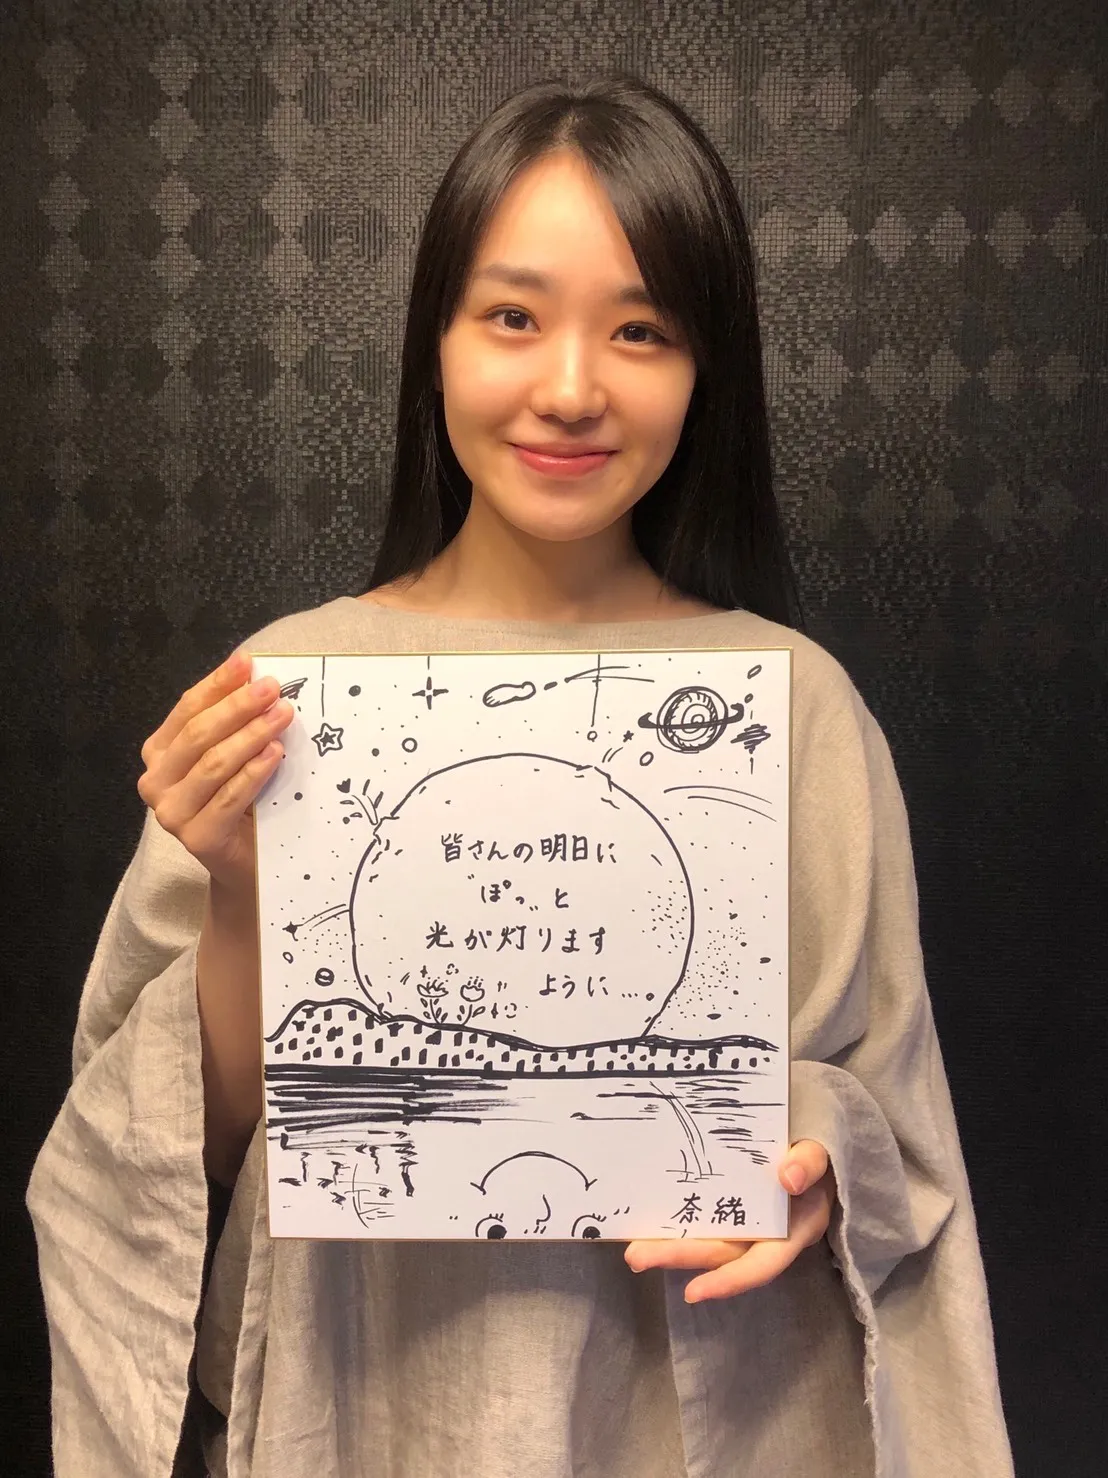 皆さんの明日に
"ぽっ"と
光が灯ります
ように...。
奈緒